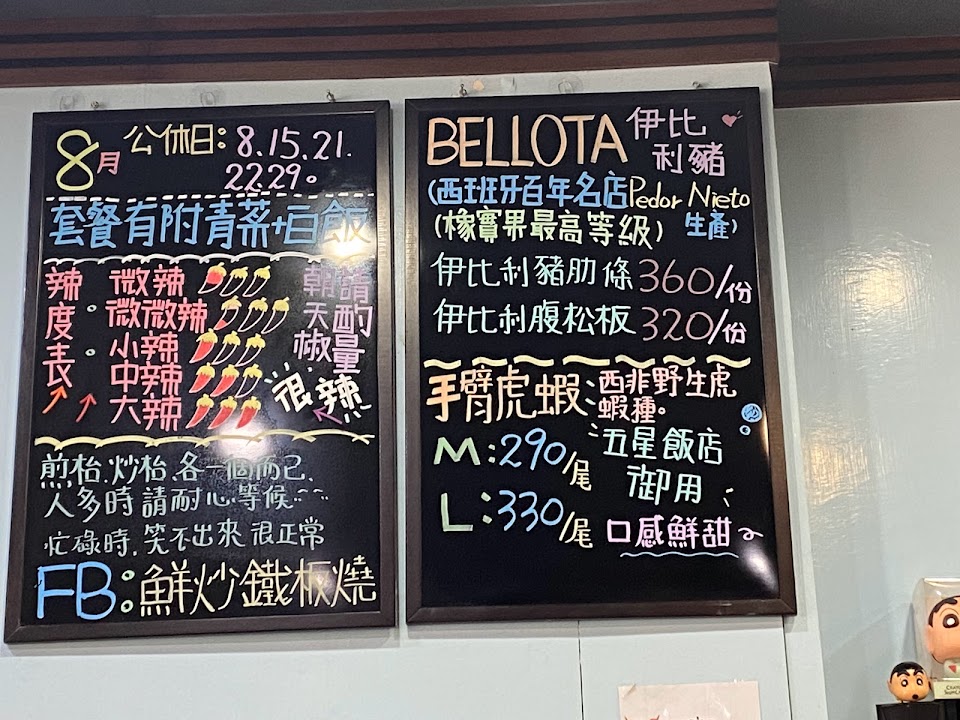 8月 公休日: 8.15.21.
22.29。
套餐有附青菜+白飯
辣度表
微辣
微微辣
小辣
中辣
大辣
朝天椒
請酌量
很辣
煎枱.炒枱.各一個而已.
人多時請耐心等候~~
忙碌時.笑不出來 很正常
FB:鮮炒鐵板燒
BELLOTA 伊比利豬
(西班牙百年名店Pedor Nieto
生產)
(橡實果最高等級)
伊比利豬肋條 360/份
伊比利腹松板 320/份
手臂虎蝦
西非野生虎
蝦種。
M:290/尾
L:330/尾
五星飯店
御用
口感鮮甜~